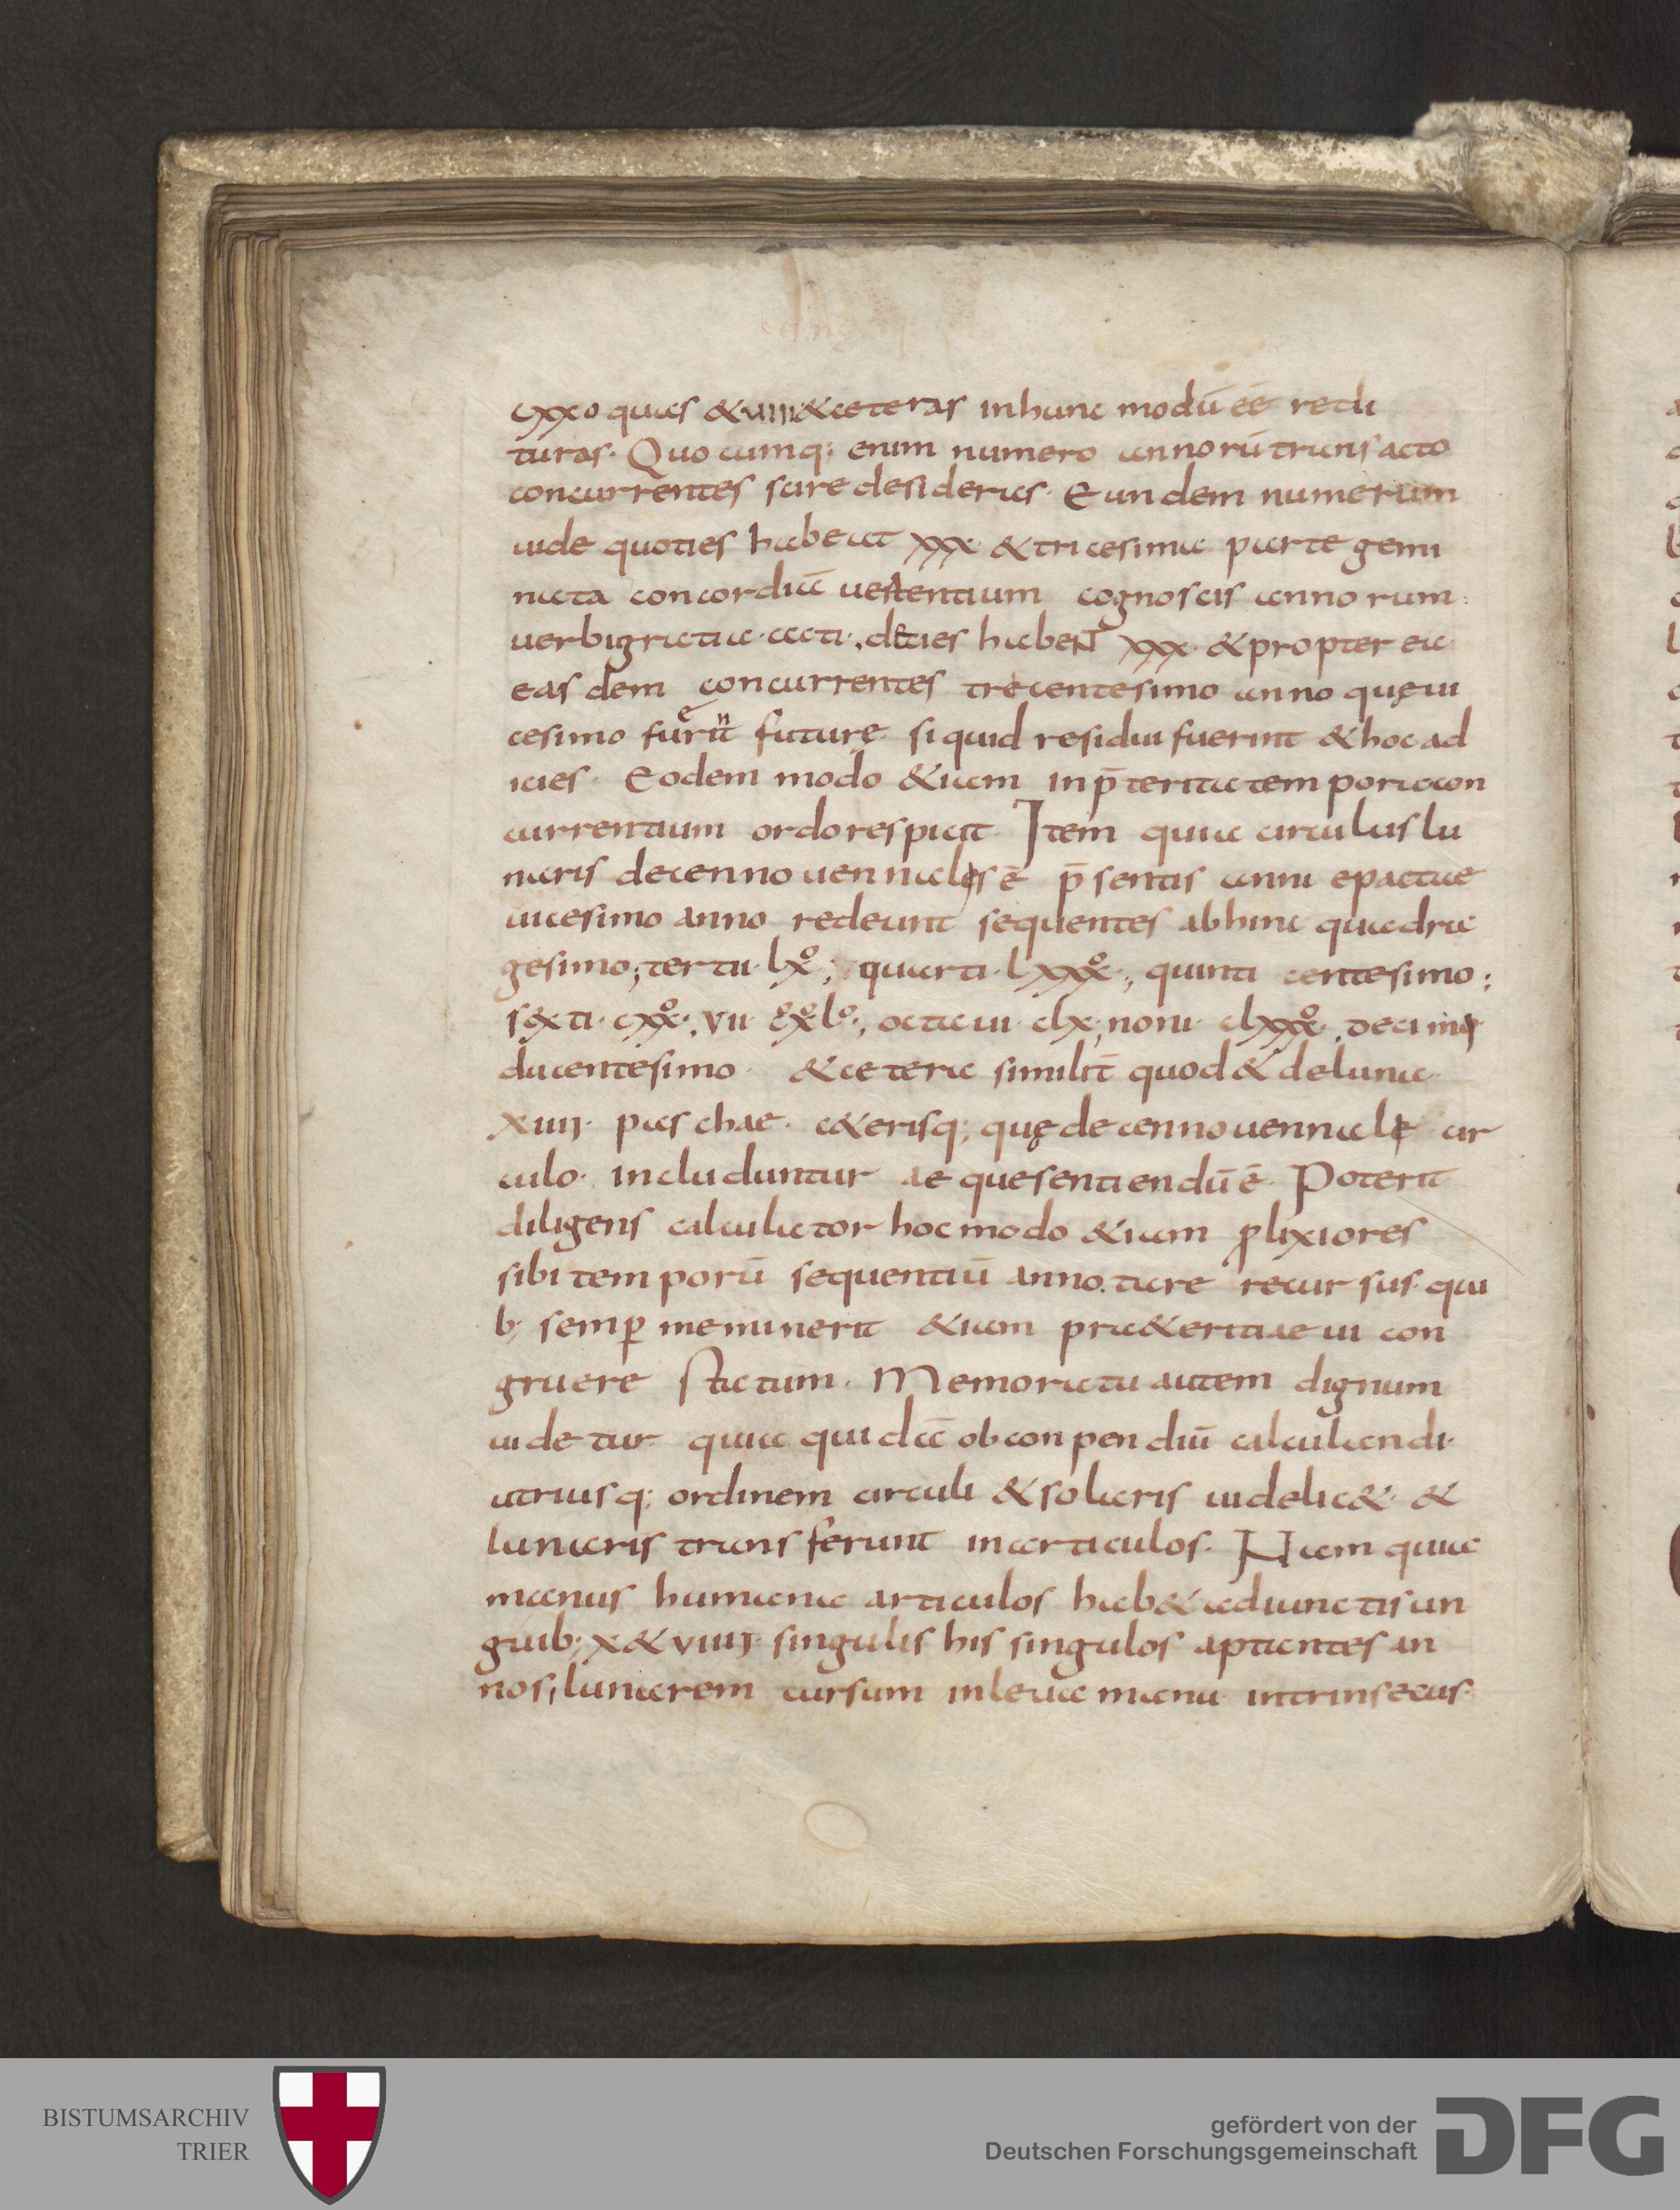 cxxo quas & viiii & ceteras inhunc modū eē redi
turas. Quo cumq; enim numero annorū transacto
concurrentes scire desideras. Eundem numerum
uide quoties habeat xxx & tricesima parte gemi
nata concordiā uestentium cognoscis annorum.
uerbigratia ccc ti, decies habent xxx. & propter ea
eas dem concurrentes trecentesimo anno quęui
cesimo fuerunt futurę. si quid residui fuerint & hoc ad
icies. Eodem modo &iam inp̄terita tempora con
currentium ordo respicit. Item quia circulus lu
naris decennouennalis ē p̄sentis anni epactae
uicesimo anno redeunt sequentes abhinc quadra
gesimo; tertii lxº; quarti lxxxº; quinti centesimo;
s&xti cxxº; vii cxlº; octaui clx; noni clxxxº; decimi
ducentesimo. & cetera similit̄ quod & deluna
xiiii. pas chae. c&erisq; quę decennouennale cir
culo. includuntur aequesentiendū ē. Poterit
diligens calculator hocmodo &iam ꝓlixiores
sibi temporū sequentiū annotare recursus. qui
b; semꝑ meminerit &iam pra&eritiae ui con
gruere statum. Memoratu autem dignum
uidetur quia quidā obconpendiū calculandi.
utriusq; ordinem circuli & solaris uidelic& &
lunaris transferunt inarticulos. Nam quia
manus humana articulos hab& adiunctis un
guib; x & viiii. singulis his singulos aptantes an
nos, lunarem cursum inleua manu intrinsecus.
BISTUMSARCHIV
TRIER
gefördert von der
Deutschen Forschungsgemeinschaft
DFG